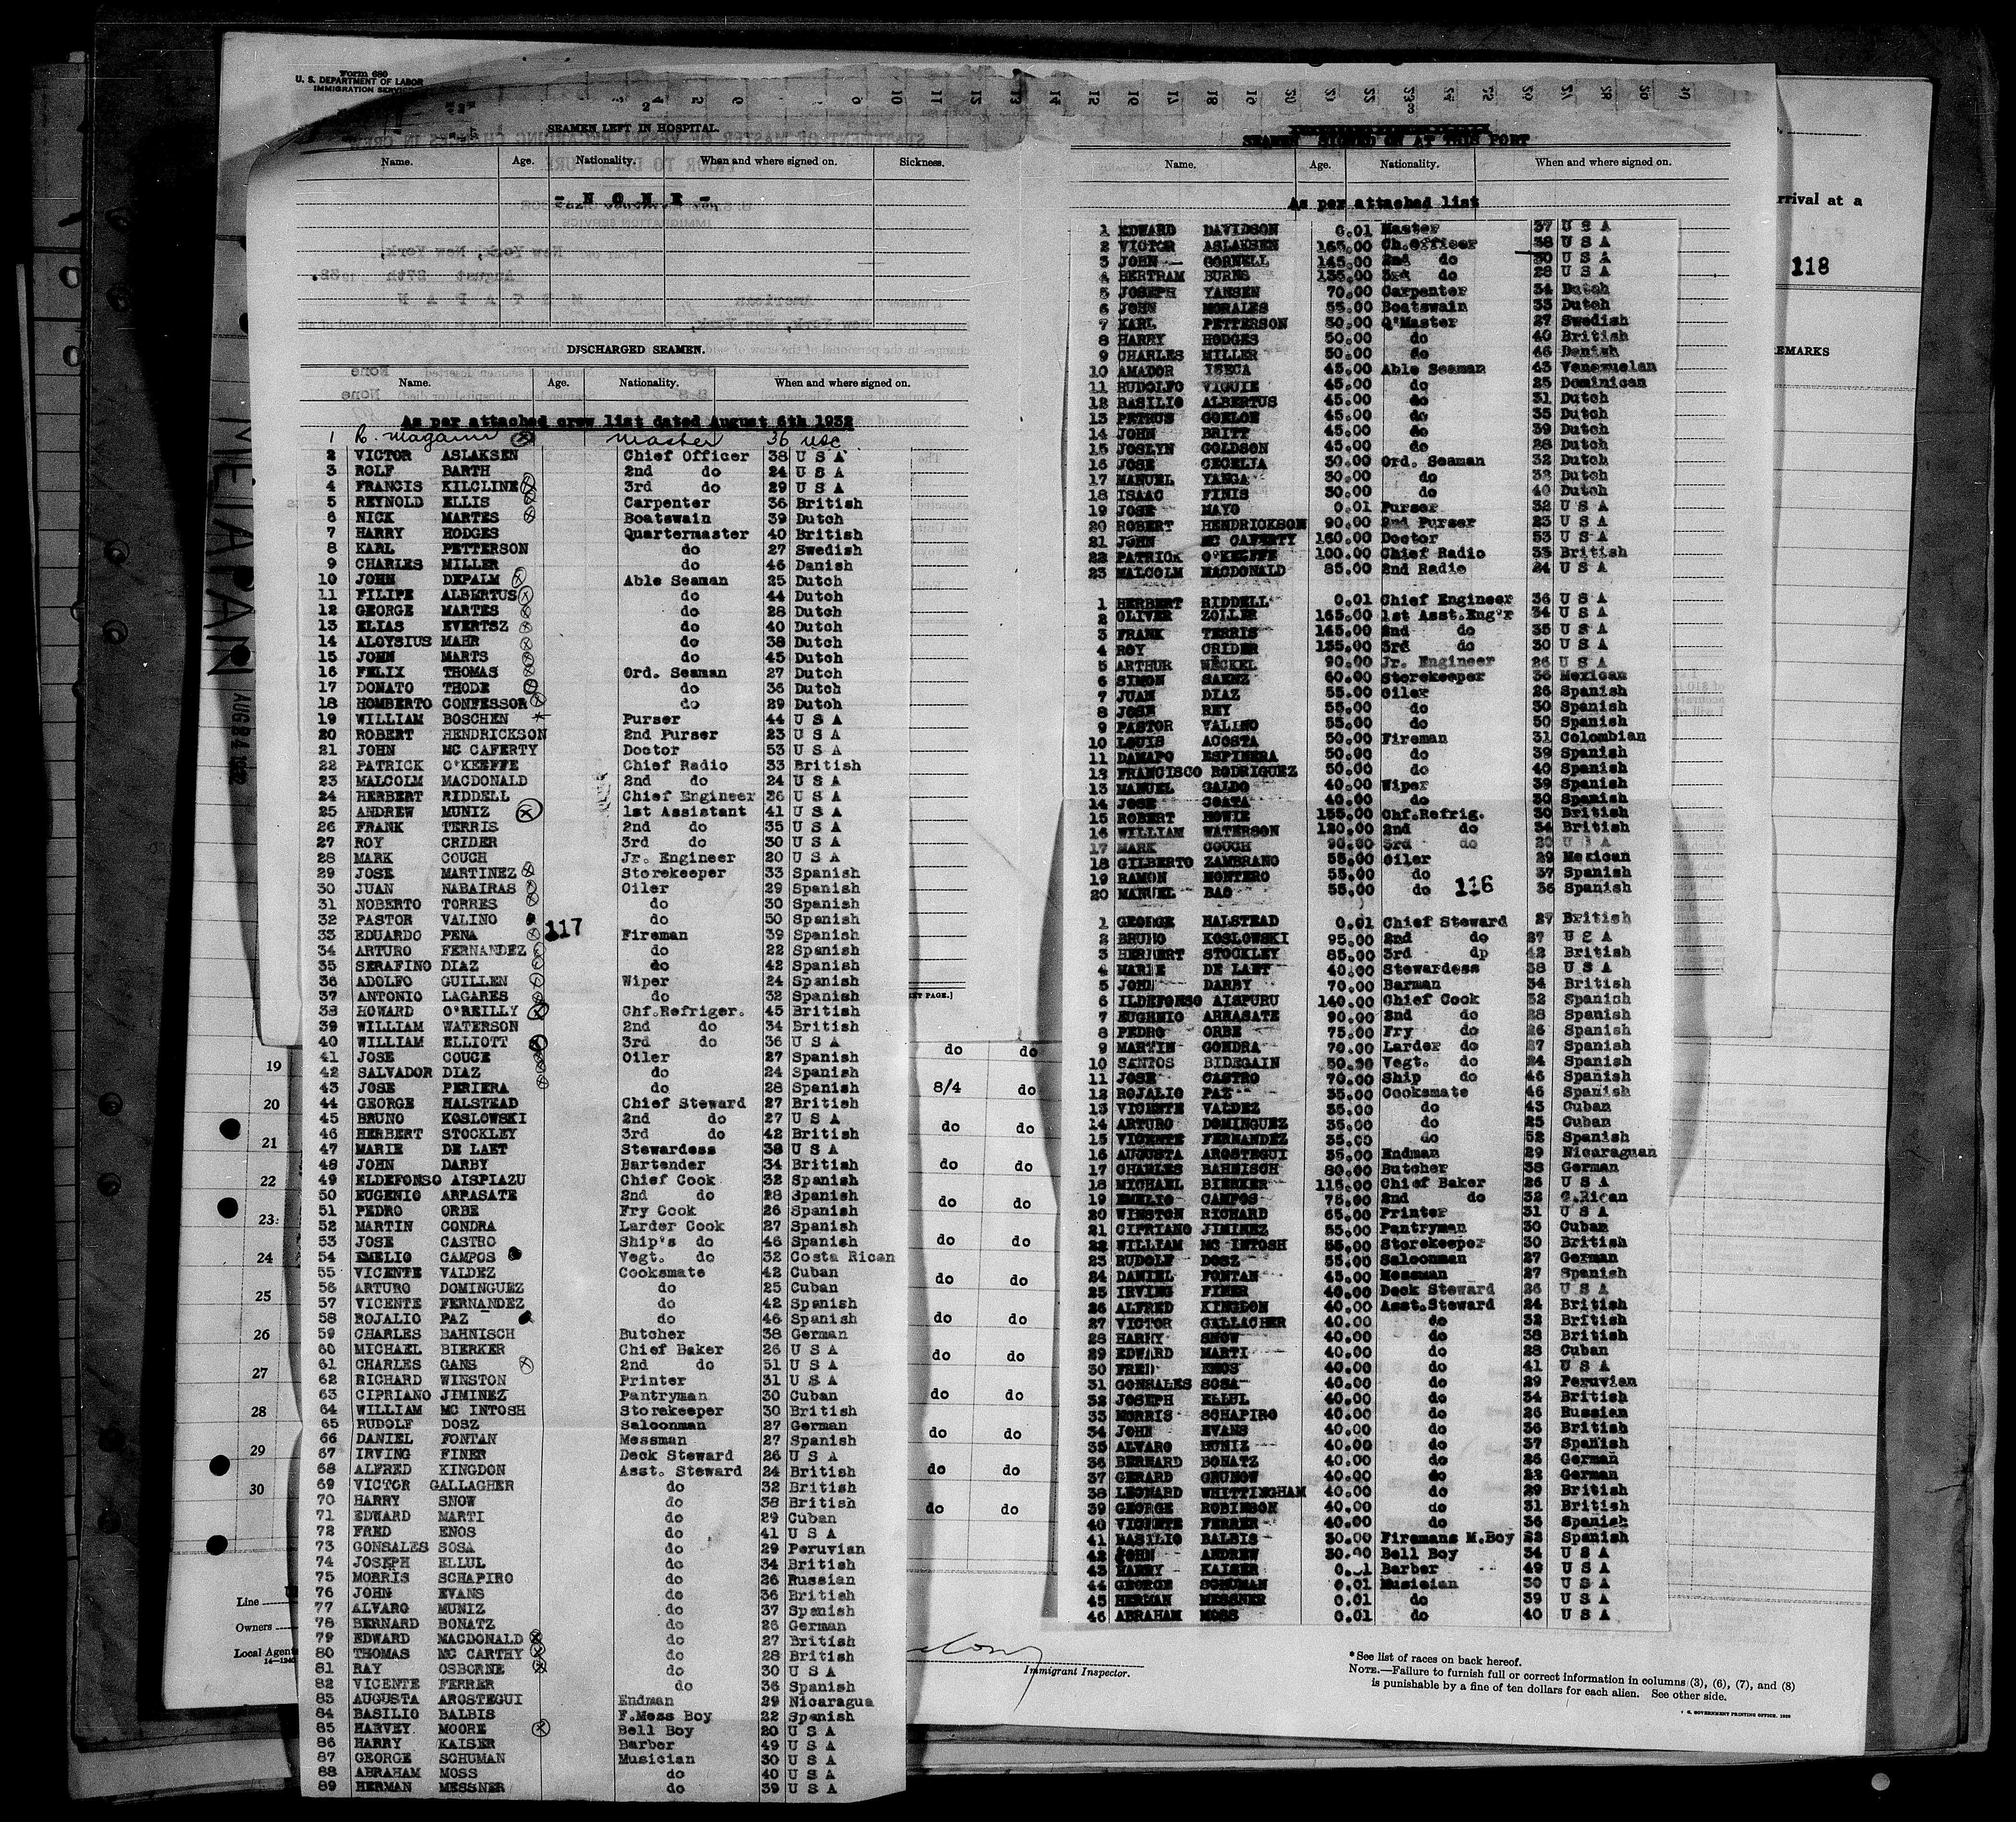 Form 680
U. S. DEPARTMENT OF LABOR
IMMIGRATION SERVICE
2
SEAMEN LEFT IN HOSPITAL.
Name. Age. Nationality. When and where signed on. Sickness.
- N O N E -
DISCHARGED SEAMEN.
Name. Age. Nationality. When and where signed on.
As per attached crew list dated August 6th 1932
1 R. Magann Master 36 USC
2 VICTOR ASLAKSEN Chief Officer 38 U S A
3 ROLF BARTH 2nd do 24 U S A
4 FRANCIS KILCLINE 3rd do 29 U S A
5 REYNOLD ELLIS Carpenter 36 British
6 NICK MARTES Boatswain 39 Dutch
7 HARRY HODGES Quartermaster 40 British
8 KARL PETTERSON do 27 Swedish
9 CHARLES MILLER do 46 Danish
10 JOHN DEPALM Able Seaman 25 Dutch
11 FILIPE ALBERTUS do 44 Dutch
12 GEORGE MARTES do 28 Dutch
13 ELIAS EVERTSZ do 40 Dutch
14 ALOYSIUS MAHR do 38 Dutch
15 JOHN MARTS do 45 Dutch
16 FELIX THOMAS Ord. Seaman 27 Dutch
17 DONATO THODE do 36 Dutch
18 HOMBERTO CONFESSOR do 29 Dutch
19 WILLIAM BOSCHEN Purser 44 U S A
20 ROBERT HENDRICKSON 2nd Purser 23 U S A
21 JOHN MC CAFERTY Doctor 53 U S A
22 PATRICK O'KEEFFE Chief Radio 33 British
23 MALCOLM MACDONALD 2nd do 24 U S A
24 HERBERT RIDDELL Chief Engineer 36 U S A
25 ANDREW MUNIZ 1st Assistant 41 U S A
26 FRANK TERRIS 2nd do 35 U S A
27 ROY CRIDER 3rd do 30 U S A
28 MARK COUCH Jr. Engineer 20 U S A
29 JOSE MARTINEZ Storekeeper 33 Spanish
30 JUAN NABAIRAS Oiler 29 Spanish
31 NOBERTO TORRES do 30 Spanish
32 PASTOR VALINO do 50 Spanish
33 EDUARDO PENA 117 Fireman 39 Spanish
34 ARTURO FERNANDEZ do 22 Spanish
35 SERAFINO DIAZ do 42 Spanish
36 ADOLFO GUILLEN Wiper 24 Spanish
37 ANTONIO LAGARES do 32 Spanish
38 HOWARD O'REILLY Chf.Refriger. 45 British
39 WILLIAM WATERSON 2nd do 34 British
40 WILLIAM ELLIOTT 3rd do 36 U S A
41 JOSE COUCE Oiler 27 Spanish
42 SALVADOR DIAZ do 24 Spanish
43 JOSE PERIERA do 28 Spanish
44 GEORGE HALSTEAD Chief Steward 27 British
45 BRUNO KOSLOWSKI 2nd do 27 U S A
46 HERBERT STOCKLEY 3rd do 42 British
47 MARIE DE LAET Stewardess 38 U S A
48 JOHN DARBY Bartender 34 British
49 ELDEFONSO AISPIAZU Chief Cook 32 Spanish
50 EUGENIO ARPASATE 2nd do 28 Spanish
51 PEDRO ORBE Fry Cook 26 Spanish
52 MARTIN CONDRA Larder Cook 27 Spanish
53 JOSE CASTRO Ship's do 46 Spanish
54 EMELIO CAMPOS Vegt. do 32 Costa Rican
55 VICENTE VALDEZ Cooksmate 42 Cuban
56 ARTURO DOMINGUEZ do 25 Cuban
57 VICENTE FERNANDEZ do 42 Spanish
58 ROJALIO PAZ do 46 Spanish
59 CHARLES BAHNISCH Butcher 38 German
60 MICHAEL BIERKER Chief Baker 26 U S A
61 CHARLES GANS 2nd do 51 U S A
62 RICHARD WINSTON Printer 31 U S A
63 CIPRIANO JIMINEZ Pantryman 30 Cuban
64 WILLIAM MC INTOSH Storekeeper 30 British
65 RUDOLF DOSZ Saloonman 27 German
66 DANIEL FONTAN Messman 27 Spanish
67 IRVING FINER Deck Steward 26 U S A
68 ALFRED KINGDON Asst. Steward 24 British
69 VICTOR GALLAGHER do 32 British
70 HARRY SNOW do 38 British
71 EDWARD MARTI do 29 Cuban
72 FRED ENOS do 41 U S A
73 GONSALES SOSA do 29 Peruvian
74 JOSEPH ELLUL do 34 British
75 MORRIS SCHAPIRO do 26 Russian
76 JOHN EVANS do 36 British
77 ALVARO MUNIZ do 37 Spanish
78 BERNARD BONATZ do 26 German
79 EDWARD MACDONALD do 27 British
80 THOMAS MC CARTHY do 28 British
81 RAY OSBORNE do 30 U S A
82 VICENTE FERRER do 36 Spanish
83 AUGUSTA AROSTEGUI Endman 29 Nicaragua
84 BASILIO BALBIS F.Mess Boy 22 Spanish
85 HARVEY MOORE Bell Boy 20 U S A
86 HARRY KAISER Barber 49 U S A
87 GEORGE SCHUMAN Musician 30 U S A
88 ABRAHAM MOSS do 40 U S A
89 HERMAN MESSNER do 39 U S A
SEAMEN SIGNED ON AT THIS PORT
Name. Age. Nationality. When and where signed on.
As per attached list
1 EDWARD DAVIDSON 0.01 Master 37 U S A
2 VICTOR ASLAKSEN 165.00 Ch.Officer 38 U S A
3 JOHN CORNELL 145.00 2nd do 30 U S A
4 BERTRAM BURNS 135.00 3rd do 28 U S A
5 JOSEPH YANSEN 70.00 Carpenter 34 Dutch
6 JOHN MORALES 55.00 Boatswain 33 Dutch
7 KARL PETTERSON 50.00 Q'Master 27 Swedish
8 HARRY HODGES 50.00 do 40 British
9 CHARLES MILLER 50.00 do 46 Danish
10 AMADOR ISECA 45.00 Able Seaman 43 Venezuelan
11 RUDOLFO VIGUIE 45.00 do 25 Dominican
12 BASILIO ALBERTUS 45.00 do 31 Dutch
13 PETRUS GOELOE 45.00 do 35 Dutch
14 JOHN BRITT 45.00 do 39 Dutch
15 JOSLYN GOLDSON 45.00 do 28 Dutch
16 JOSE CECELIA 30.00 Ord. Seaman 32 Dutch
17 MANUEL YARGA 30.00 do 32 Dutch
18 ISAAC FINIS 30.00 do 40 Dutch
19 JOSE MAYO 0.01 Purser 32 U S A
20 ROBERT HENDRICKSON 90.00 2nd Purser 23 U S A
21 JOHN MC CAFERTY 160.00 Doctor 53 U S A
22 PATRICK O'KEEFFE 100.00 Chief Radio 33 British
23 MALCOLM MACDONALD 85.00 2nd Radio 24 U S A
1 HERBERT RIDDELL 0.01 Chief Engineer 36 U S A
2 OLIVER ZOLLER 165.00 1st Asst.Eng'r 34 U S A
3 FRANK TERRIS 145.00 2nd do 35 U S A
4 ROY CRIDER 135.00 3rd do 30 U S A
5 ARTHUR WECKEL 90.00 Jr. Engineer 26 U S A
6 SIMON SAENZ 60.00 Storekeeper 36 Mexican
7 JUAN DIAZ 55.00 Oiler 26 Spanish
8 JOSE REY 55.00 do 30 Spanish
9 PASTOR VALINO 55.00 do 50 Spanish
10 LOUIS ACOSTA 50.00 Fireman 31 Colombian
11 DAMAPO ESPINERA 50.00 do 39 Spanish
12 FRANCISCO RODRIGUEZ 50.00 do 40 Spanish
13 MANUEL GALDO 40.00 Wiper 39 Spanish
14 JOSE COATA 40.00 do 30 Spanish
15 ROBERT HOWIE 155.00 Chf.Refrig. 30 British
16 WILLIAM WATERSON 120.00 2nd do 34 British
17 MARK COUCH 90.00 3rd do 20 U S A
18 GILBERTO ZAMBRANO 55.00 Oiler 29 Mexican
19 RAMON MONTERO 55.00 do 37 Spanish
20 MANUEL BAO 55.00 do 116 36 Spanish
1 GEORGE HALSTEAD 0.01 Chief Steward 27 British
2 BRUNO KOSLOWSKI 95.00 2nd do 27 U S A
3 HERBERT STOCKLEY 85.00 3rd dp 42 British
4 MARIE DE LAET 40.00 Stewardess 38 U S A
5 JOHN DARBY 70.00 Barman 34 British
6 ILDEFONSO AISPURU 140.00 Chief Cook 32 Spanish
7 EUGHNIO ARRASATE 90.00 2nd do 28 Spanish
8 PEDRO ORBE 75.00 Fry do 26 Spanish
9 MARTIN GONDRA 70.00 Larder do 27 Spanish
10 SANTOS BIDEGAIN 50.00 Vegt. do 24 Spanish
11 JOSE CASTRO 70.00 Ship do 46 Spanish
12 ROJALIO PAZ 35.00 Cooksmate 46 Spanish
13 VICENTE VALDEZ 35.00 do 43 Cuban
14 ARTURO DOMINGUEZ 35.00 do 25 Cuban
15 VICENTE FERNANDEZ 35.00 do 52 Spanish
16 AUGUSTA AROSTEGUI 35.00 Endman 29 Nicaraguan
17 CHARLES BAHNISCH 80.00 Butcher 38 German
18 MICHAEL BIERKER 115.00 Chief Baker 26 U S A
19 EMELIO CAMPOS 75.00 2nd do 32 C.Rican
20 WINSTON RICHARD 65.00 Printer 31 U S A
21 CIPRIANO JIMINEZ 55.00 Pantryman 30 Cuban
22 WILLIAM MC INTOSH 55.00 Storekeeper 30 British
23 RUDOLF DOSZ 55.00 Saloonman 27 German
24 DANIEL FONTAN 45.00 Messman 27 Spanish
25 IRVING FINER 40.00 Deck Steward 26 U S A
26 ALFRED KINGDON 40.00 Asst.Steward 24 British
27 VICTOR GALLACHER 40.00 do 32 British
28 HARRY SNOW 40.00 do 38 British
29 EDWARD MARTI 40.00 do 28 Cuban
30 FRED ENOS 40.00 do 41 U S A
31 GONSALES SOSA 40.00 do 29 Peruvian
32 JOSEPH ELLUL 40.00 do 34 British
33 MORRIS SCHAPIRO 40.00 do 26 Russian
34 JOHN EVANS 40.00 do 36 British
35 ALVARO MUNIZ 40.00 do 37 Spanish
36 BERNARD BONATZ 40.00 do 26 German
37 GERARD GRUNOW 40.00 do 22 German
38 LEONARD WHITTINGHAM 40.00 do 29 British
39 GEORGE ROBINSON 40.00 do 31 British
40 VICENTE FERRER 40.00 do 36 Spanish
41 BASILIO BALBIS 30.00 Firemans M.Boy 22 Spanish
42 JOHN ANDREW 30.00 Bell Boy 34 U S A
43 HARRY KAISER 0.01 Barber 49 U S A
44 GEORGE SCHUMAN 0.01 Musician 30 U S A
45 HERMAN MESSNER 0.01 do 39 U S A
46 ABRAHAM MOSS 0.01 do 40 U S A
rrival at a
118
EMARKS
METAPAN
AUG 24 1932
ET PAGE.]
do do
19
20 8/4 do
21 do do
22 do do
23 do do
24 do do
25 do do
26 do do
27 do do
28 do do
29 do do
30 do do
do do
Line
Owners
Local Agents
14-1240
Immigrant Inspector.
* See list of races on back hereof.
NOTE.—Failure to furnish full or correct information in columns (3), (6), (7), and (8)
is punishable by a fine of ten dollars for each alien. See other side.
GOVERNMENT PRINTING OFFICE. 1928